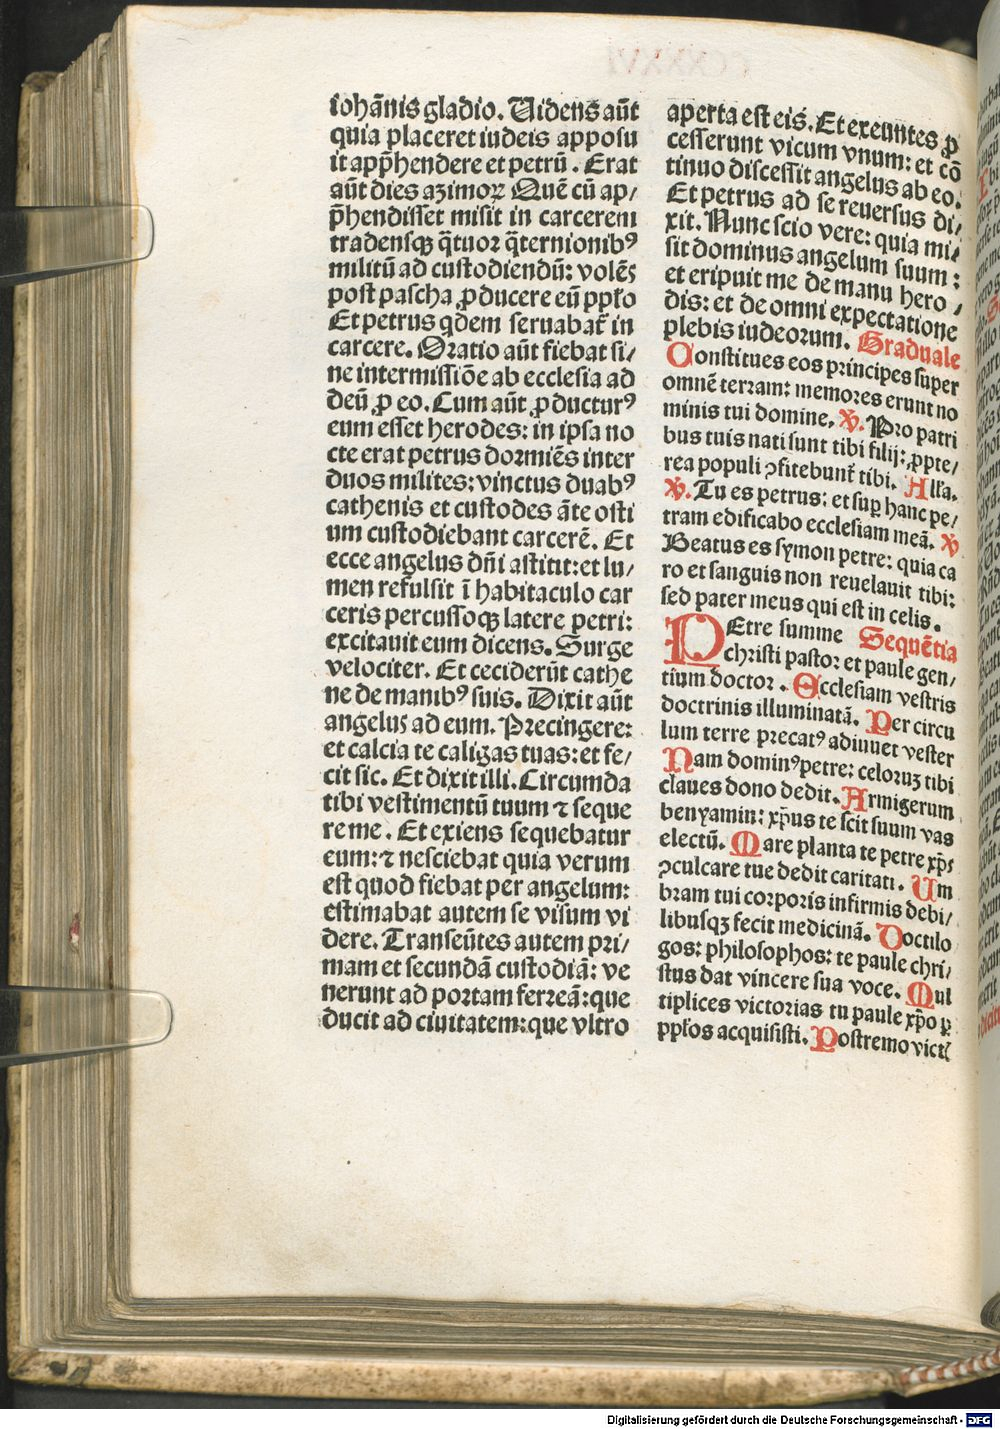 iohānis gladio. Uidens aūt
quia placeret iudeis apposu
it app̄hendere et petrū. Erat
aūt dies azimoꝝ Quē cū ap/
p̄hendisset misit in carcerem
tradensqꝫ q̄tuor q̄ternionibꝰ
militū ad custodiendū: volēs
post pascha ꝓducere eū ppło
Et petrus qdem seruabat̄ in
carcere. Oratio aūt fiebat si/
ne intermissiōe ab ecclesia ad
deū ꝓ eo. Cum aūt ꝓducturꝰ
eum esset herodes: in ipsa no
cte erat petrus dormiēs inter
duos milites: vinctus duabꝰ
cathenis et custodes āte osti
um custodiebant carcerē. Et
ecce angelus dn̄i astitit: et lu/
men refulsit ī habitaculo car
ceris percussoqꝫ latere petri:
excitauit eum dicens. Surge
velociter. Et ceciderūt cathe
ne de manibꝰ suis. Dixit aūt
angelus ad eum. Precingere:
et calcia te caligas tuas: et fe/
cit sic. Et dixit illi. Circumda
tibi vestimentū tuum ⁊ seque
re me. Et exiens sequebatur
eum: ⁊ nesciebat quia verum
est quod fiebat per angelum:
estimabat autem se visum vi
dere. Transeūtes autem pri/
mam et secundā custodiā: ve
nerunt ad portam ferreā: que
ducit ad ciuitatem: que vltro
aperta est eis. Et exeuntes ꝓ
cesserunt vicum vnum: et cō
tinuo discessit angelus ab eo.
Et petrus ad se reuersus di/
xit. Nunc scio vere: quia mi/
sit dominus angelum suum:
et eripuit me de manu hero/
dis: et de omni expectatione
plebis iudeorum. Graduale
Constitues eos principes super
omnē terram: memores erunt no
minis tui domine. ℣. Pro patri
bus tuis nati sunt tibi filij: ꝓpte/
rea populi ꝯfitebunt̄ tibi. Alła.
℣. Tu es petrus: et suꝑ hanc pe/
tram edificabo ecclesiam meā. ℣
Beatus es symon petre: quia ca
ro et sanguis non reuelauit tibi:
sed pater meus qui est in celis.
PEtre summe Sequētia
christi pastor et paule gen/
tium doctor. Ecclesiam vestris
doctrinis illuminatā. Per circu
lum terre precatꝰ adiuuet vester
Nam dominꝰ petre: celoruꝫ tibi
claues dono dedit. Armigerum
benyamin: xp̄us te scit suum vas
electū. Mare planta te petre xp̄s
ꝯculcare tue dedit caritati. Um
bram tui corporis infirmis debi/
libusqꝫ fecit medicinā. Doctilo
gos: philosophos: te paule chri/
stus dat vincere sua voce. Mul
tiplices victorias tu paule xp̄o ꝑ
ppłos acquisisti. Postremo vict
Digitalisierung gefördert durch die Deutsche Forschungsgemeinschaft - DFG